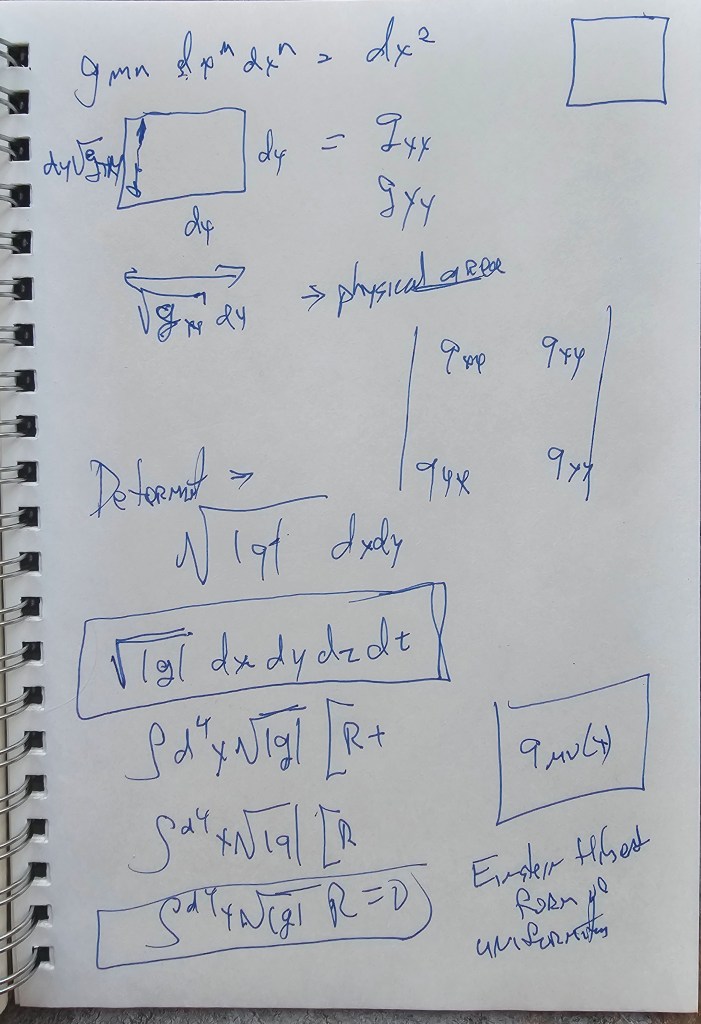 g mn dx^m dx^n = dx²
dy√gyy dy = gxx
dx gyy
√gxx dy → physical area
| gxx gxy |
| gyx gyy |
Determnt ⇒
√|g| dxdy
√|g| dx dy dz dt
∫d⁴x√|g| [R+
gμν(x)
∫d⁴x√|g| [R
Einstein Hilbert
∫d⁴x√|g| R = 0
form